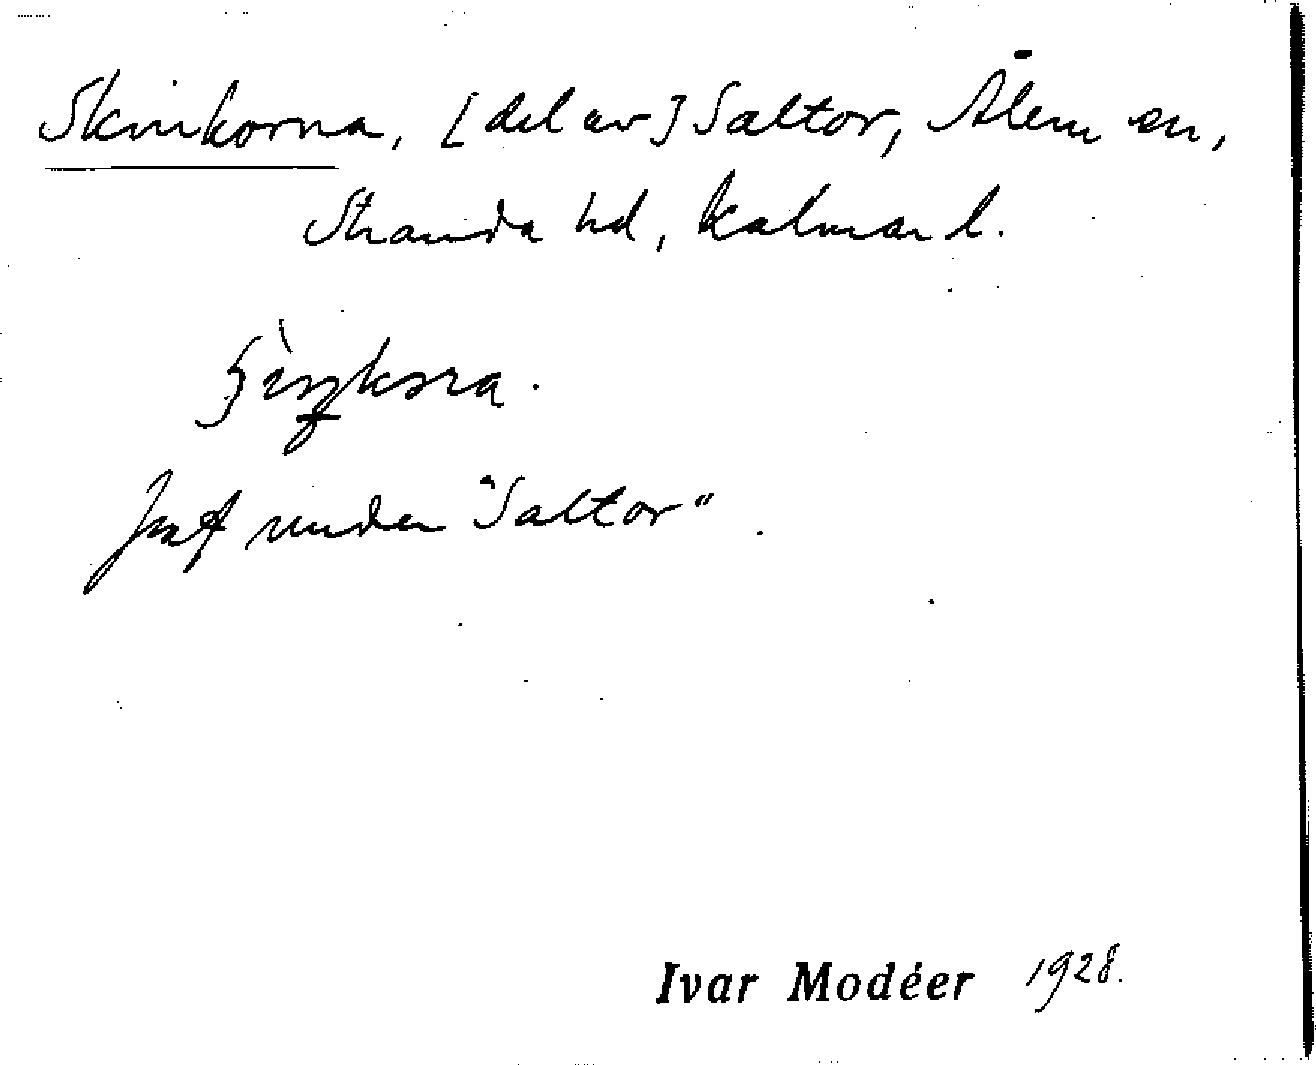 Skinkorna, [del av] Saltor, Ålem sn,
Stranda hd, Kalmar l.
under "Saltor".
Ivar Modéer 1928.